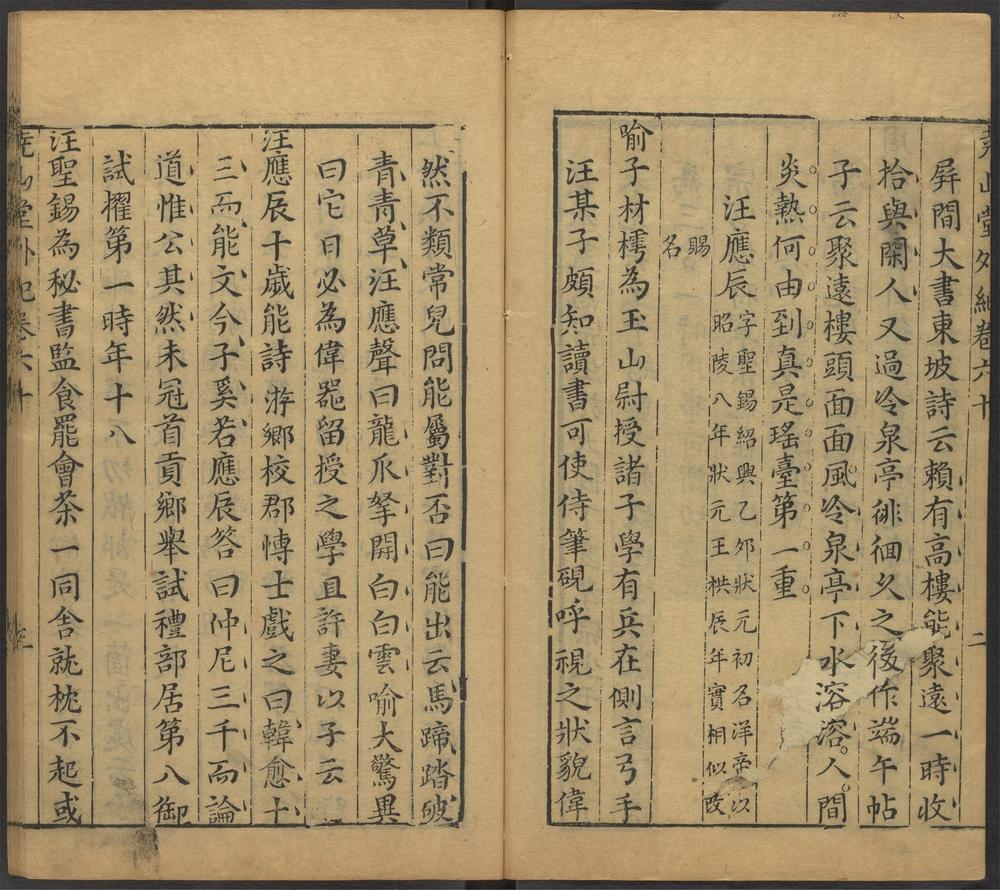 堯山堂外紀卷六十 二
屏間大書東坡詩云賴有高樓能聚遠一時收
拾與閑人又過冷泉亭徘徊久之後作端午帖
子云聚遠樓頭面面風冷泉亭下水溶溶人間
炎熱何由到真是瑤臺第一重
汪應辰
字聖錫紹興乙卯狀元初名洋帝以
昭陵八年狀元王拱辰年實相似改
賜
名
喻子材樗為玉山尉授諸子學有兵在側言弓手
汪某子頗知讀書可使侍筆硯呼視之狀貌偉
然不類常兒問能屬對否曰能出云馬蹄踏破
青青草汪應聲曰龍爪拏開白白雲喻大驚異
曰它日必為偉器留授之學且許妻以子云
汪應辰十歲能詩游鄉校郡博士戲之曰韓愈十
三而能文今子奚若應辰答曰仲尼三千而論
道惟公其然未冠首貢鄉舉試禮部居第八御
試擢第一時年十八
汪聖錫為秘書監食罷會茶一同舍就枕不起或
堯山堂外紀卷六十